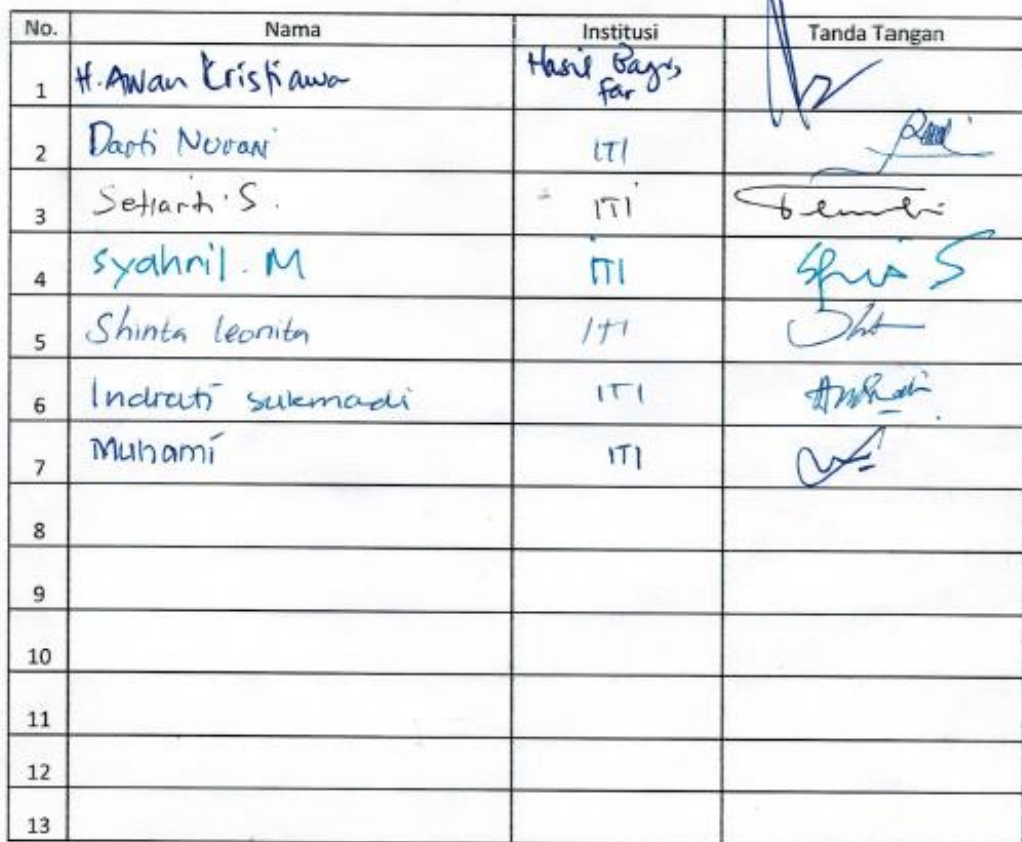 No. Nama Institusi Tanda Tangan
1 H. Awan Kristiawa Hasil Bagus
Far
2 Darti Nurani ITI
3 Setiarti S. ITI
4 Syahril . M ITI
5 Shinta leonita ITI
6 Indrati sukmadi ITI
7 Muhami ITI
8
9
10
11
12
13